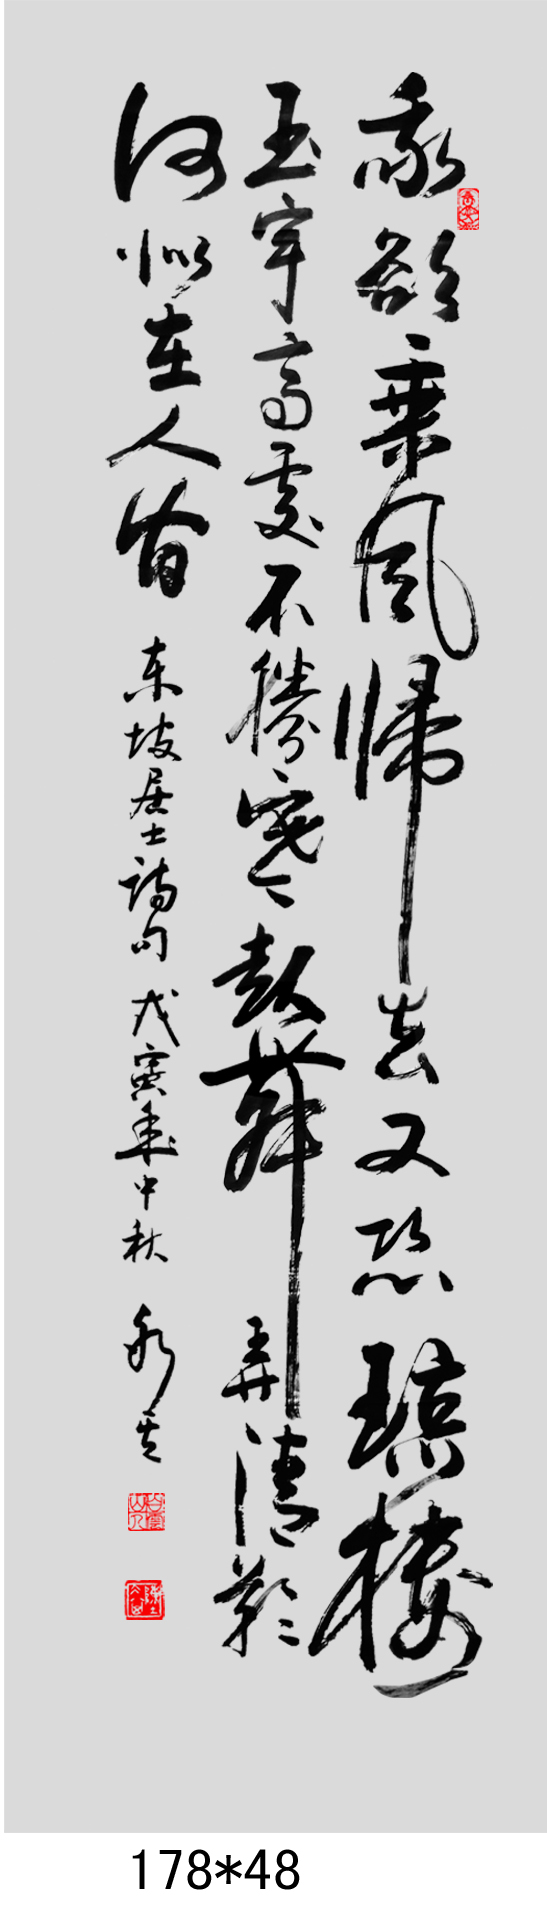 我欲乘風歸去又恐琼樓
玉宇高處不勝寒起舞弄清影
何似在人間 东坡居士詩句 戊寅年中秋
178*48